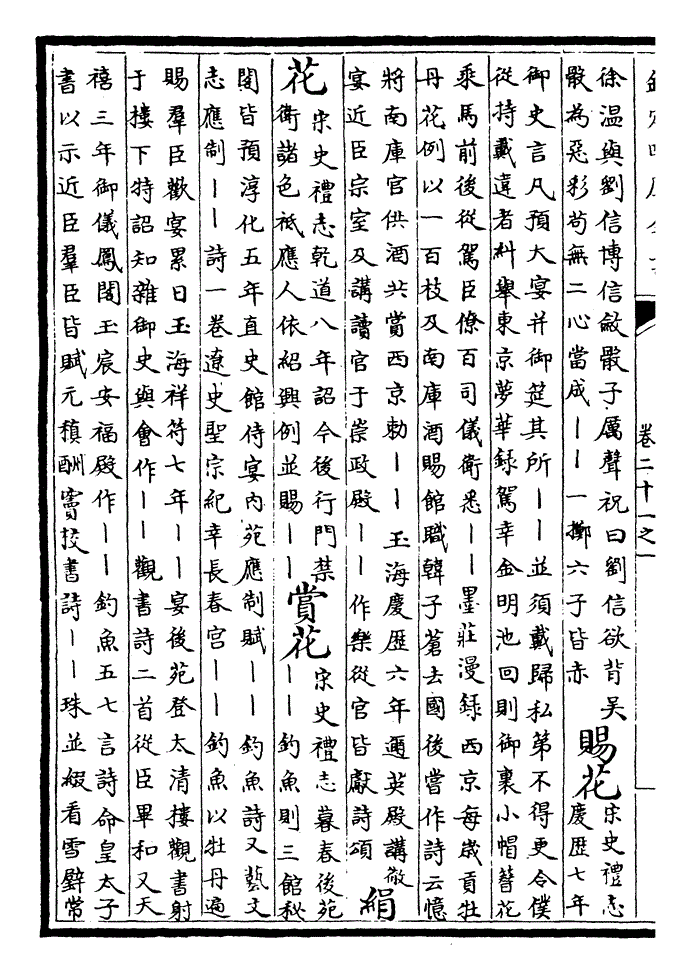 卷二十一之一
徐温與劉信博信斂骰子厲聲祝曰劉信欲背吳
骰為惡彩苟無二心當成——一擲六子皆赤
賜花
宋史禮志
慶歴七年
御史言凡預大宴并御筵其所——並須戴歸私第不得更令僕
從持戴違者糾舉東京夢華録駕幸金明池回則御裹小帽簪花
乘馬前後從駕臣僚百司儀衛悉——墨莊漫録西京每歲貢牡
丹花例以一百枝及南庫酒賜館職韓子蒼去國後嘗作詩云憶
將南庫官供酒共賞西京勅——玉海慶歴六年邇英殿講徹
宴近臣宗室及講讀官于崇政殿——作樂從官皆獻詩頌
絹
花
宋史禮志乾道八年詔今後行門禁
衛諸色祗應人依紹興例並賜——
賞花
宋史禮志暮春後苑
——釣魚則三館秘
閣皆預淳化五年直史館侍宴内苑應制賦——釣魚詩又藝文
志應制——詩一卷遼史聖宗紀幸長春宫——釣魚以牡丹遍
賜羣臣歡宴累日玉海祥符七年——宴後苑登太清樓觀書射
于樓下特詔知雜御史與會作——觀書詩二首從臣畢和又天
禧三年御儀鳳閣玉宸安福殿作——釣魚五七言詩命皇太子
書以示近臣羣臣皆賦元稹酬竇校書詩——珠並綴看雪璧常